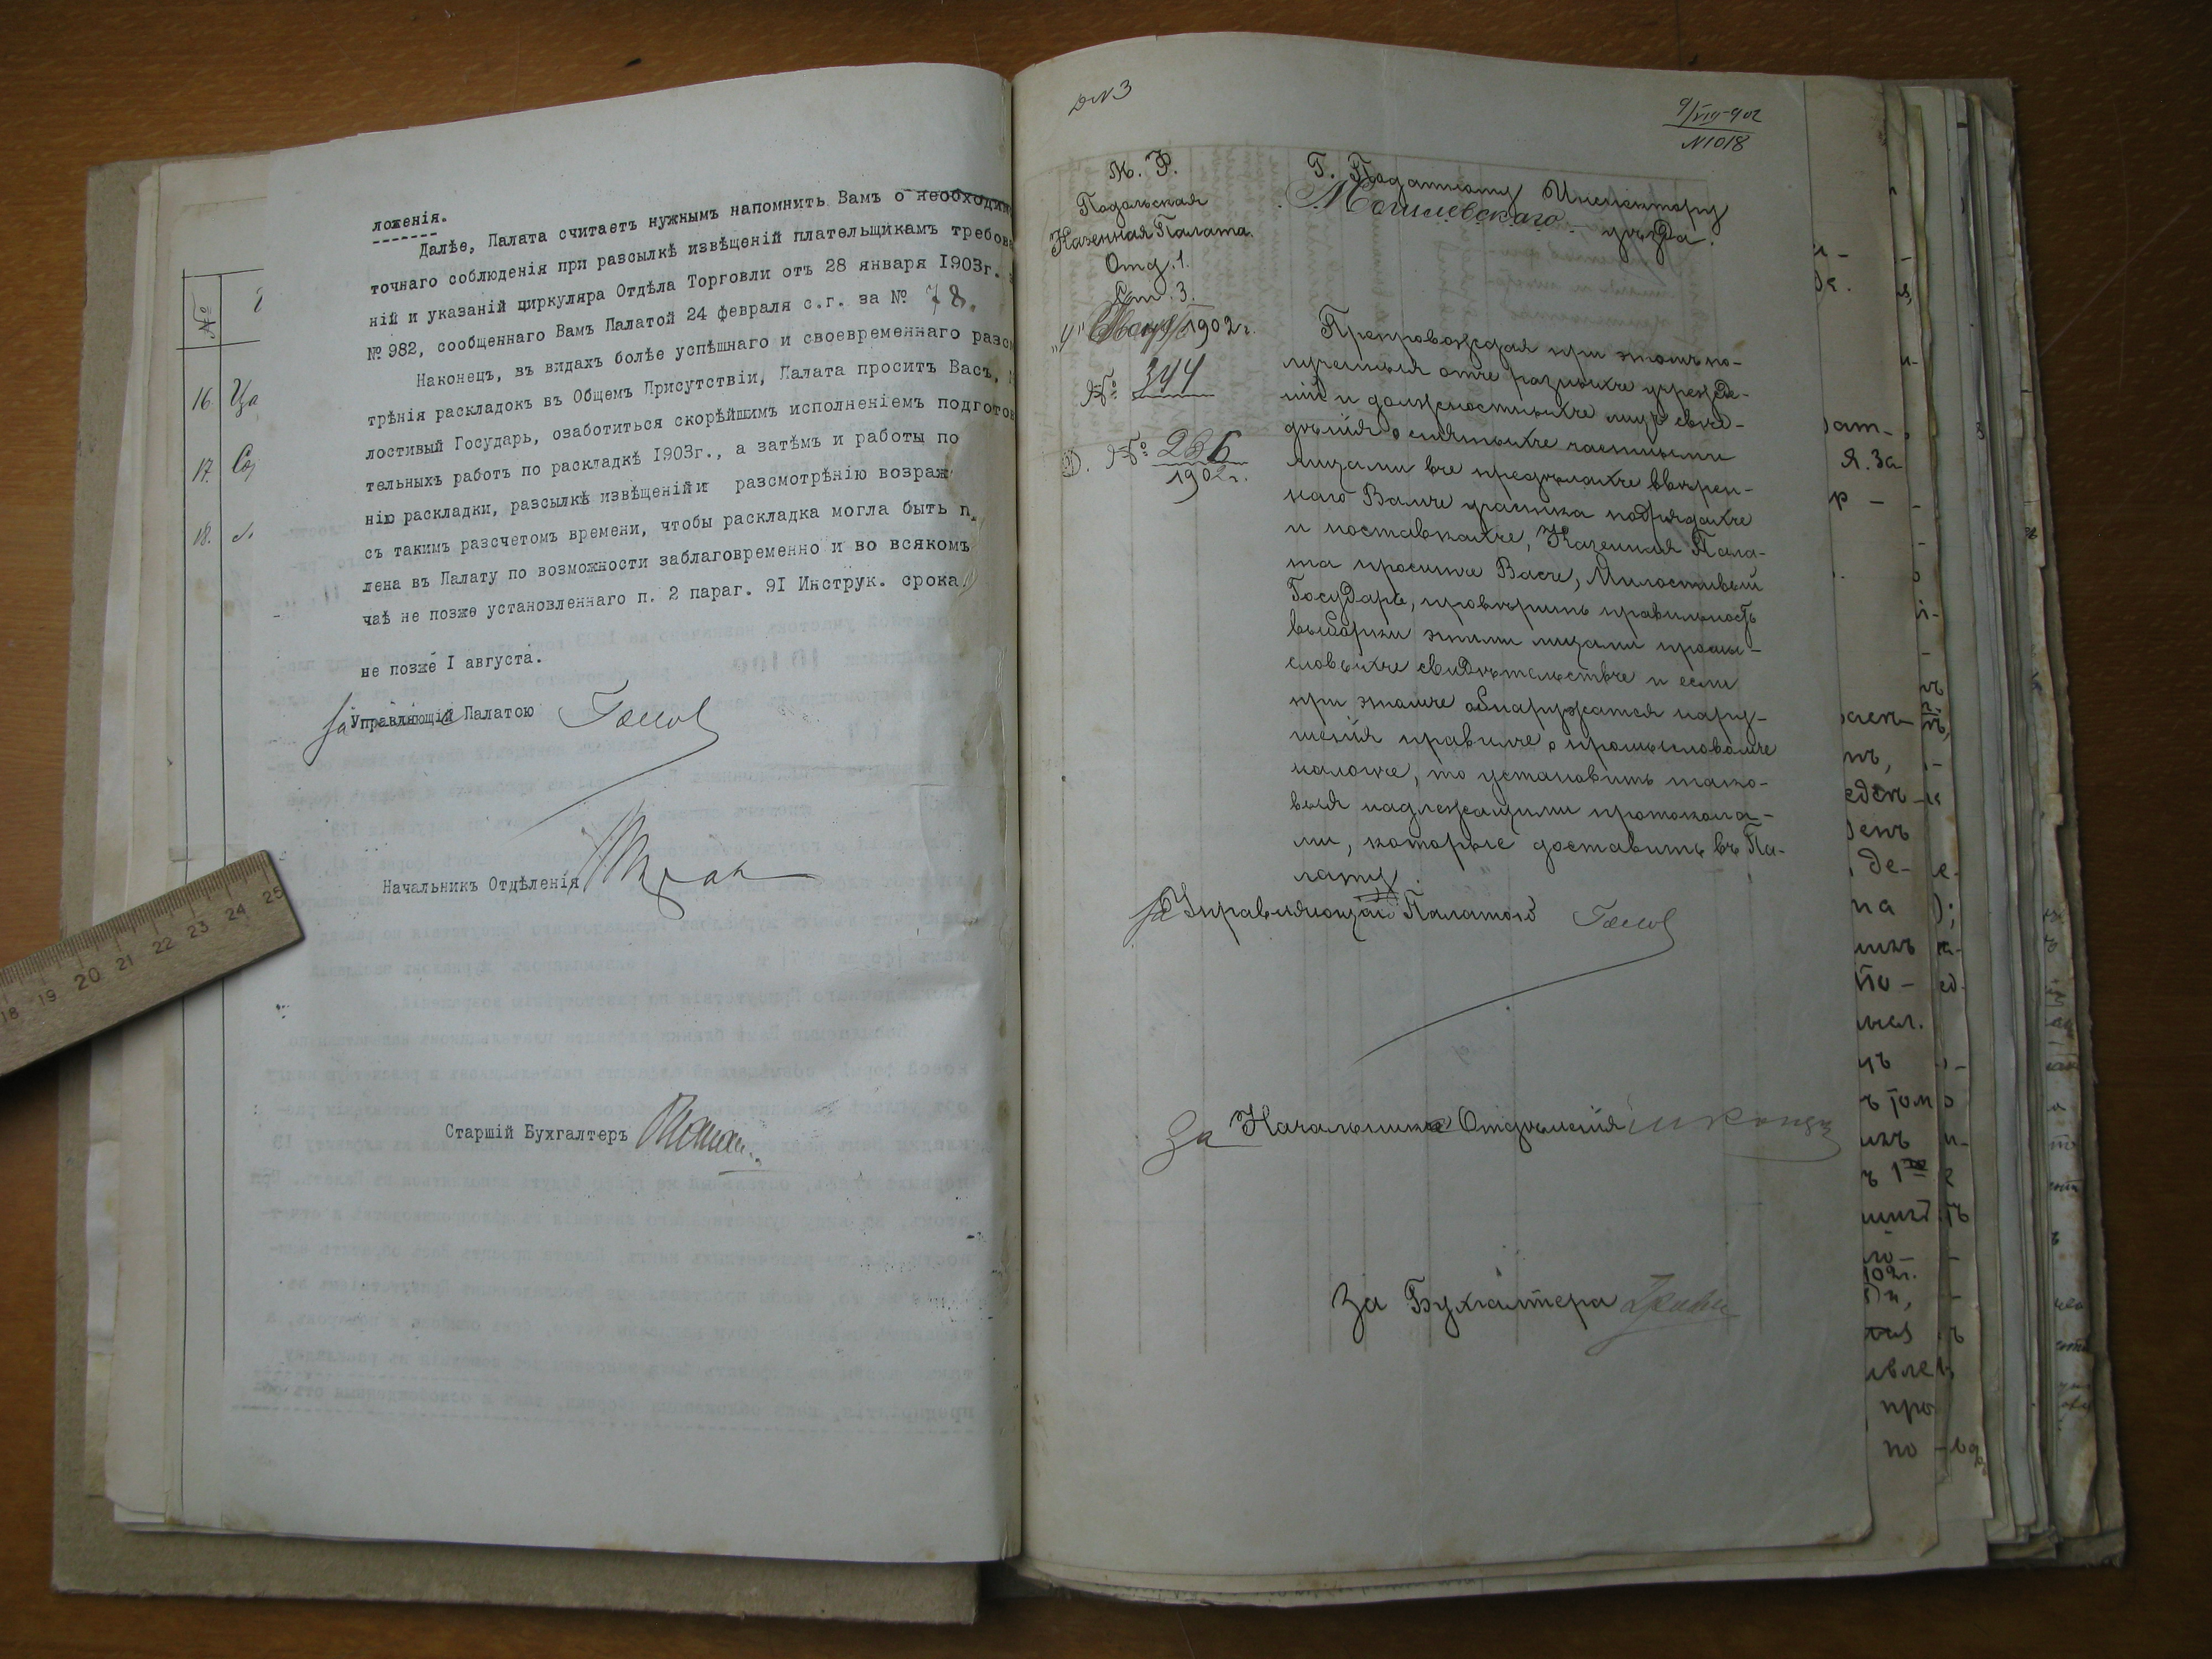 ложенія.
Далѣе, Палата считаетъ нужнымъ напомнить Вамъ о необходим
точнаго соблюденія при разсылкѣ извѣщеній плательщикамъ требова
ній и указаній циркуляра Отдѣла Торговли отъ 28 января 1903г.
№ 982, сообщеннаго Вамъ Палатой 24 февраля с.г. за № 78.
Наконецъ, въ видахъ болѣе успѣшнаго и своевременнаго разсм
трѣнія раскладокъ въ Общемъ Присутствіи, Палата проситъ Васъ,
лостивый Государь, озаботиться скорѣйшимъ исполненіемъ подготов
тельныхъ работъ по раскладкѣ 1903г., а затѣмъ и работы по
нію раскладки, разсылкѣ извѣщеній и разсмотрѣнію возраж
съ такимъ разсчетомъ времени, чтобы раскладка могла быть п
лена въ Палату по возможности заблаговременно и во всякомъ
чаѣ не позже установленнаго п. 2 параг. 91 Инструк. срока
не позже I августа.
За Управляющій Палатою
Начальникъ Отдѣленія
Старшій Бухгалтеръ
№
16. Ца
17. Со
18.
18 19 20 21 22 23 24 25
№ 3
9/VIII-902
№ 1018
М. Ф.
Подольская
Казенная Палата.
Отд. 1.
Ст. 3.
1902 г.
№ 344
Д. № 236
1902 г.
Г. Податному Инспектору
Могилевскаго уѣзда.
Препровождая при этомъ по-
лученныя отъ разныхъ учрежде-
ній и должностныхъ лицъ свѣ-
дѣнія о снятыхъ частными
лицами въ предѣлахъ ввѣрен-
наго Вамъ участка подрядахъ
и поставкахъ, Казенная Пала-
та проситъ Васъ, Милостивый
Государь, провѣрить правильность
выборки этими лицами промы-
словыхъ свидѣтельствъ и если
при этомъ обнаружатся нару-
шенія правилъ о промысловомъ
налогѣ, то установить тако-
выя надлежащими протокола-
ми, которые доставить въ Па-
лату.
За Управляющій Палатой
За Начальника Отдѣленія
За Бухгалтера